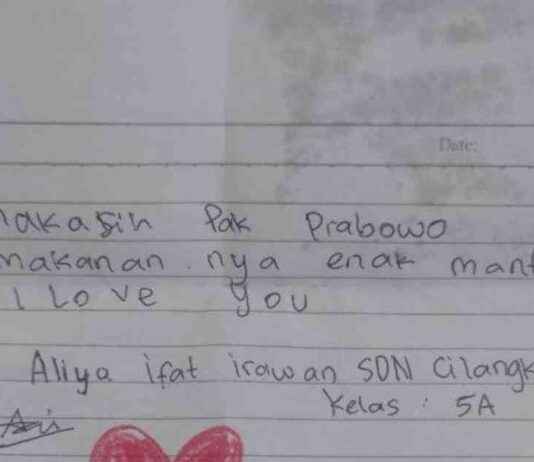 Date:
makasih Pak Prabowo
makanan.nya enak mant
I Love you
Aliya ifat irawan SDN Cilangk
Kelas : 5A